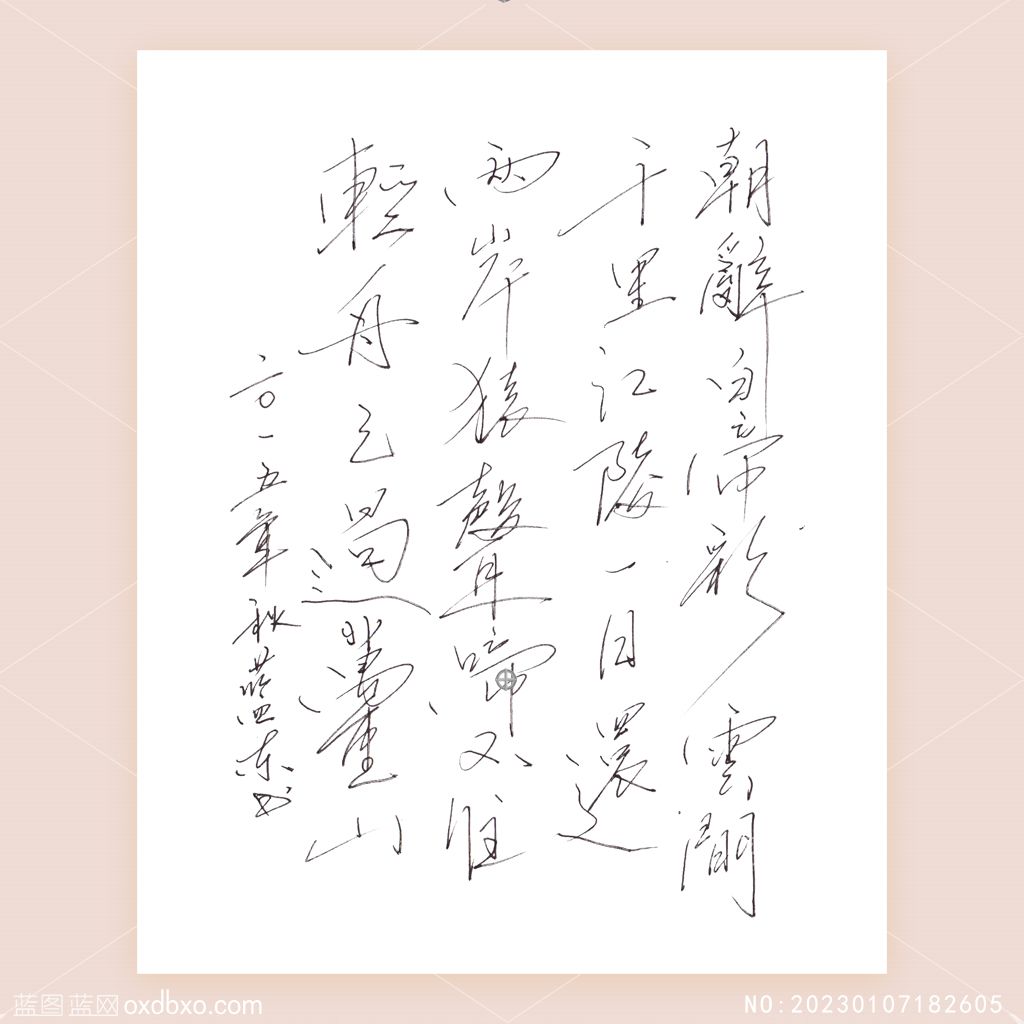 朝辭白帝彩雲間
千里江陵一日還
兩岸猿聲啼不住
輕舟已過萬重山
二〇一五年秋蓝东书
蓝图蓝网 oxdbxo.com
NO:20230107182605